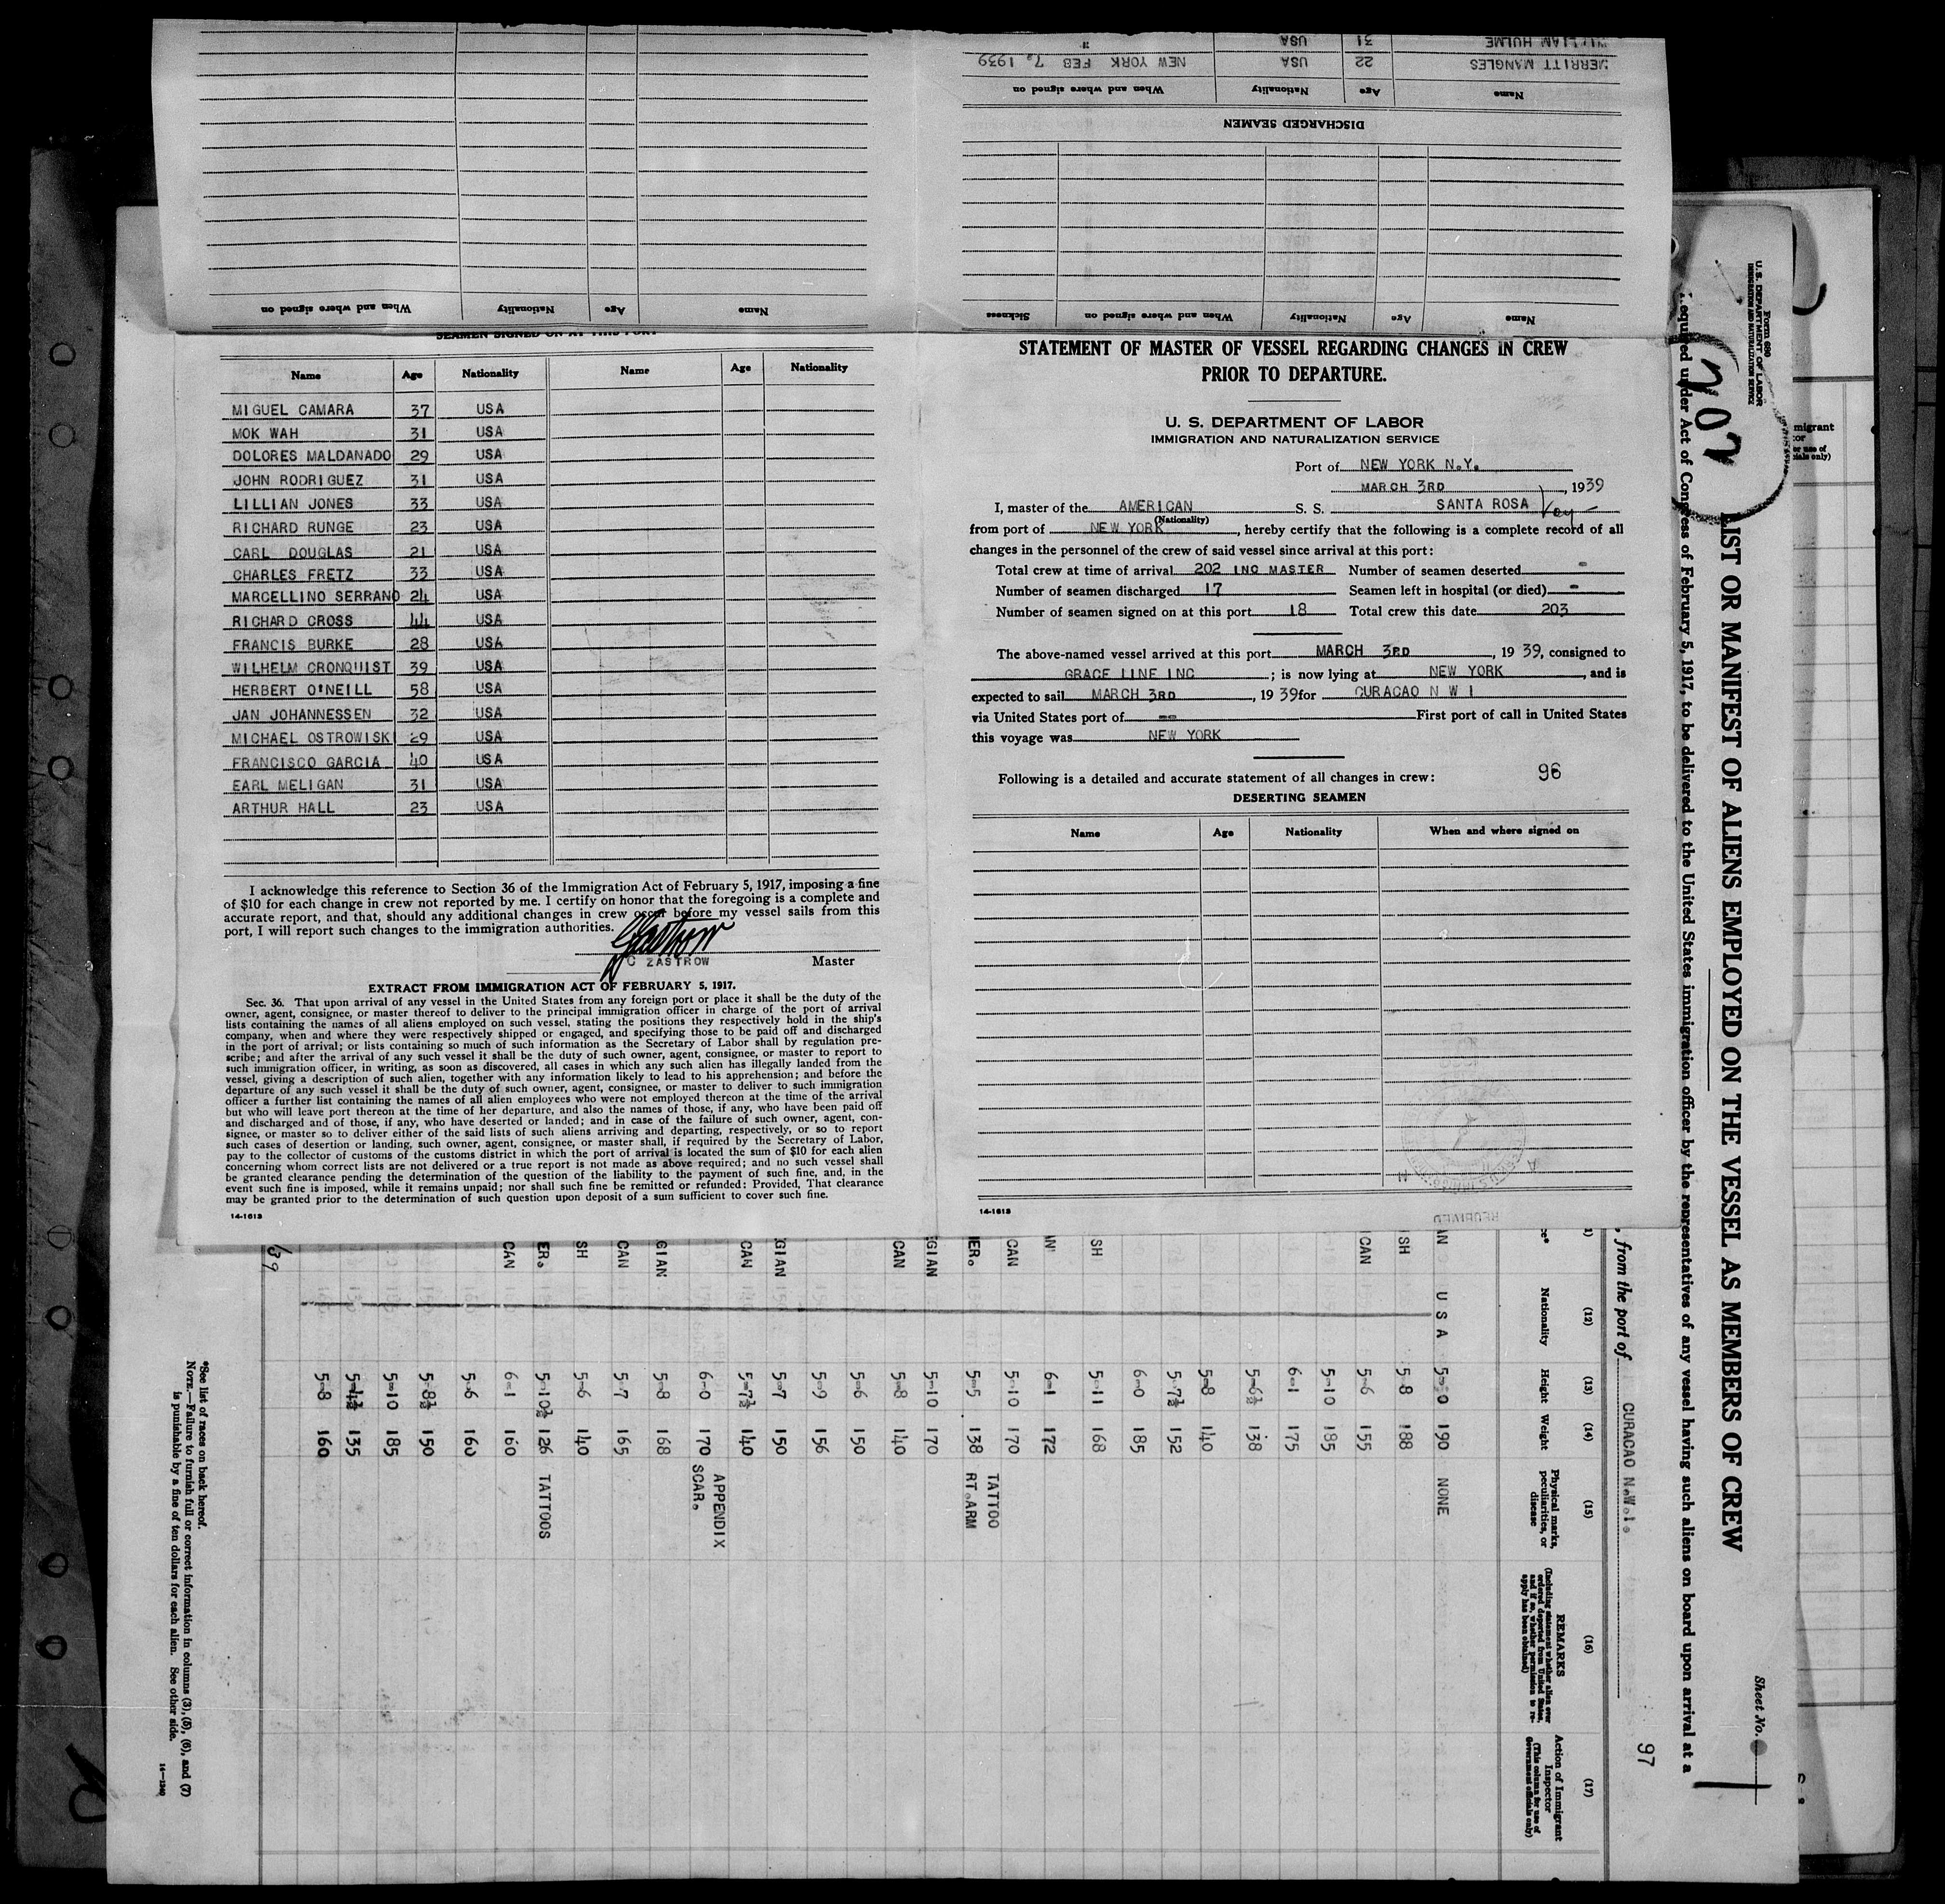 MERRITT MANGLES 22 USA NEW YORK FEB 7, 1939
WILLIAM HULME 31 USA "
Name Age Nationality When and where signed on
DISCHARGED SEAMEN
Name Age Nationality When and where signed on Sickness
Name Age Nationality When and where signed on
SEAMEN SIGNED ON AT THIS PORT
Name Age Nationality Name Age Nationality
MIGUEL CAMARA 37 USA
MOK WAH 31 USA
DOLORES MALDANADO 29 USA
JOHN RODRIGUEZ 31 USA
LILLIAN JONES 33 USA
RICHARD RUNGE 23 USA
CARL DOUGLAS 21 USA
CHARLES FRETZ 33 USA
MARCELLINO SERRANO 24 USA
RICHARD CROSS 44 USA
FRANCIS BURKE 28 USA
WILHELM CRONQUIST 39 USA
HERBERT O'NEILL 58 USA
JAN JOHANNESSEN 32 USA
MICHAEL OSTROWISK 29 USA
FRANCISCO GARCIA 40 USA
EARL MELIGAN 31 USA
ARTHUR HALL 23 USA
I acknowledge this reference to Section 36 of the Immigration Act of February 5, 1917, imposing a fine
of $10 for each change in crew not reported by me. I certify on honor that the foregoing is a complete and
accurate report, and that, should any additional changes in crew occur before my vessel sails from this
port, I will report such changes to the immigration authorities.
C ZASTROW Master
EXTRACT FROM IMMIGRATION ACT OF FEBRUARY 5, 1917.
Sec. 36. That upon arrival of any vessel in the United States from any foreign port or place it shall be the duty of the
owner, agent, consignee, or master thereof to deliver to the principal immigration officer in charge of the port of arrival
lists containing the names of all aliens employed on such vessel, stating the positions they respectively hold in the ship's
company, when and where they were respectively shipped or engaged, and specifying those to be paid off and discharged
in the port of arrival; or lists containing so much of such information as the Secretary of Labor shall by regulation pre-
scribe; and after the arrival of any such vessel it shall be the duty of such owner, agent, consignee, or master to report to
such immigration officer, in writing, as soon as discovered, all cases in which any such alien has illegally landed from the
vessel, giving a description of such alien, together with any information likely to lead to his apprehension; and before the
departure of any such vessel it shall be the duty of such owner, agent, consignee, or master to deliver to such immigration
officer a further list containing the names of all alien employees who were not employed thereon at the time of the arrival
but who will leave port thereon at the time of her departure, and also the names of those, if any, who have been paid off
and discharged and of those, if any, who have deserted or landed; and in case of the failure of such owner, agent, con-
signee, or master so to deliver either of the said lists of such aliens arriving and departing, respectively, or so to report
such cases of desertion or landing, such owner, agent, consignee, or master shall, if required by the Secretary of Labor,
pay to the collector of customs of the customs district in which the port of arrival is located the sum of $10 for each alien
concerning whom correct lists are not delivered or a true report is not made as above required; and no such vessel shall
be granted clearance pending the determination of the question of the liability to the payment of such fine, and, in the
event such fine is imposed, while it remains unpaid; nor shall such fine be remitted or refunded: Provided, That clearance
may be granted prior to the determination of such question upon deposit of a sum sufficient to cover such fine.
14-1613
STATEMENT OF MASTER OF VESSEL REGARDING CHANGES IN CREW
PRIOR TO DEPARTURE.
U. S. DEPARTMENT OF LABOR
IMMIGRATION AND NATURALIZATION SERVICE
Port of NEW YORK N.Y.
MARCH 3RD, 1939
I, master of the AMERICAN S. S. SANTA ROSA
(Nationality)
from port of NEW YORK, hereby certify that the following is a complete record of all
changes in the personnel of the crew of said vessel since arrival at this port:
Total crew at time of arrival 202 INC MASTER Number of seamen deserted -
Number of seamen discharged 17 Seamen left in hospital (or died) -
Number of seamen signed on at this port 18 Total crew this date 203
The above-named vessel arrived at this port MARCH 3RD, 19 39, consigned to
GRACE LINE INC ; is now lying at NEW YORK, and is
expected to sail MARCH 3RD, 19 39 for CURACAO N W I
via United States port of -- First port of call in United States
this voyage was NEW YORK
Following is a detailed and accurate statement of all changes in crew: 96
DESERTING SEAMEN
Name Age Nationality When and where signed on
14-1613
RECEIVED
Form 680
U. S. DEPARTMENT OF LABOR
IMMIGRATION AND NATURALIZATION SERVICE
202
Sheet No.
LIST OR MANIFEST OF ALIENS EMPLOYED ON THE VESSEL AS MEMBERS OF CREW
Required under Act of Congress of February 5, 1917, to be delivered to the United States immigration officer by the representatives of any vessel having such aliens on board upon arrival at a
, from the port of CURACAO N.W.I.
97
(12) (13) (14) (15) (16) (17)
Nationality Height Weight Physical marks, peculiarities, or disease
REMARKS
(Including statement whether alien ever ordered deported from United States, and if so, whether permission to re-apply has been obtained)
Action of Immigrant Inspector
(This column for use of Government officials only)
AN U S A 5-10 190 NONE
SH 5-8 188
CAN 5-6 155
5-10 185
6-1 175
5-6½ 138
5-8 140
5-7½ 152
6-0 185
SH 5-11 168
AN 6-1 172
CAN 5-10 170
IER. 5-5 138 TATTOO RT.ARM
GIAN 5-10 170
CAN 5-8 140
5-6 150
5-9 156
GIAN 5-7 150
CAN 5-7½ 140
6-0 170 APPENDIX SCAR.
GIAN 5-8 168
CAN 5-7 165
SH 5-6 140
ER. 5-10½ 126 TATTOOS
CAN 6-1 160
5-6 160
5-8½ 150
5-10 185
5-4½ 135
5-8 160
/39
*See list of races on back hereof.
NOTE.—Failure to furnish full or correct information in columns (3), (5), (6), and (7)
is punishable by a fine of ten dollars for each alien. See other side.
14-1240